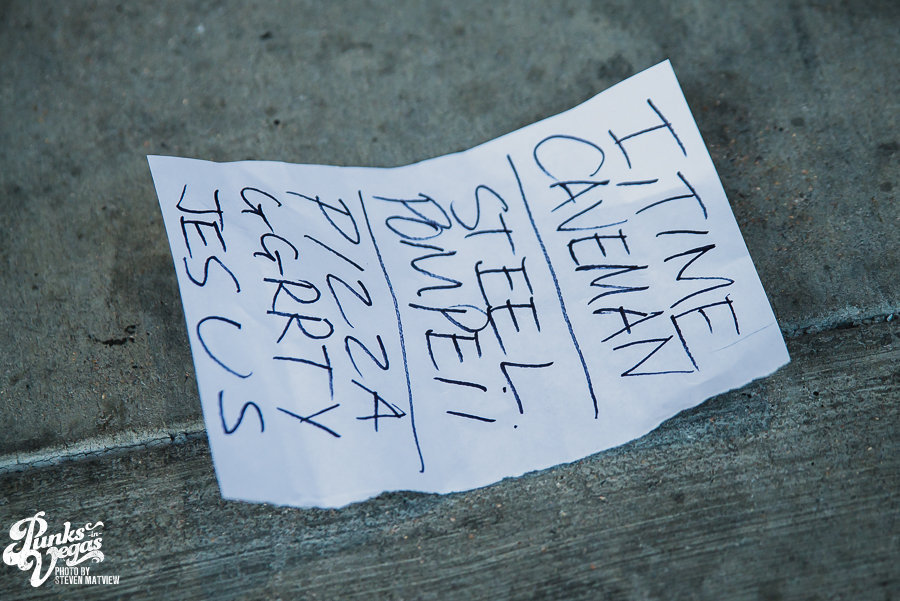 I. TIME
CAVEMAN
STEEL.
POMPEII
PIZZA
GGRTY
JESUS
Punks in Vegas
PHOTO BY
STEVEN MATVIEW